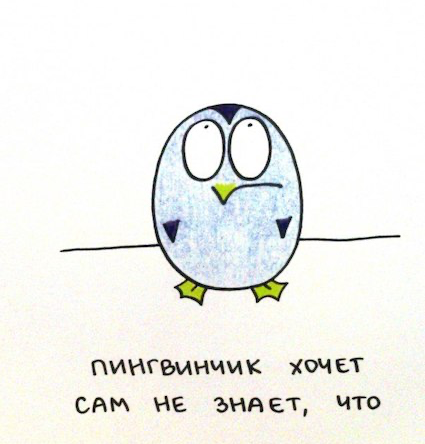 ПИНГВИНЧИК ХОЧЕТ
САМ НЕ ЗНАЕТ, ЧТО